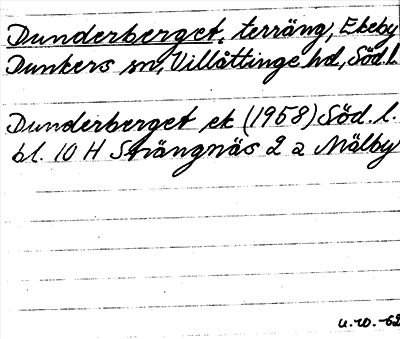 Dunderberget, terräng, Ekeby
Dunkers sn, Villåttinge hd, Söd.l.
Dunderberget ek (1958) Söd. l.
bl. 10 H Strängnäs 2 a Mälby
u.w. -62